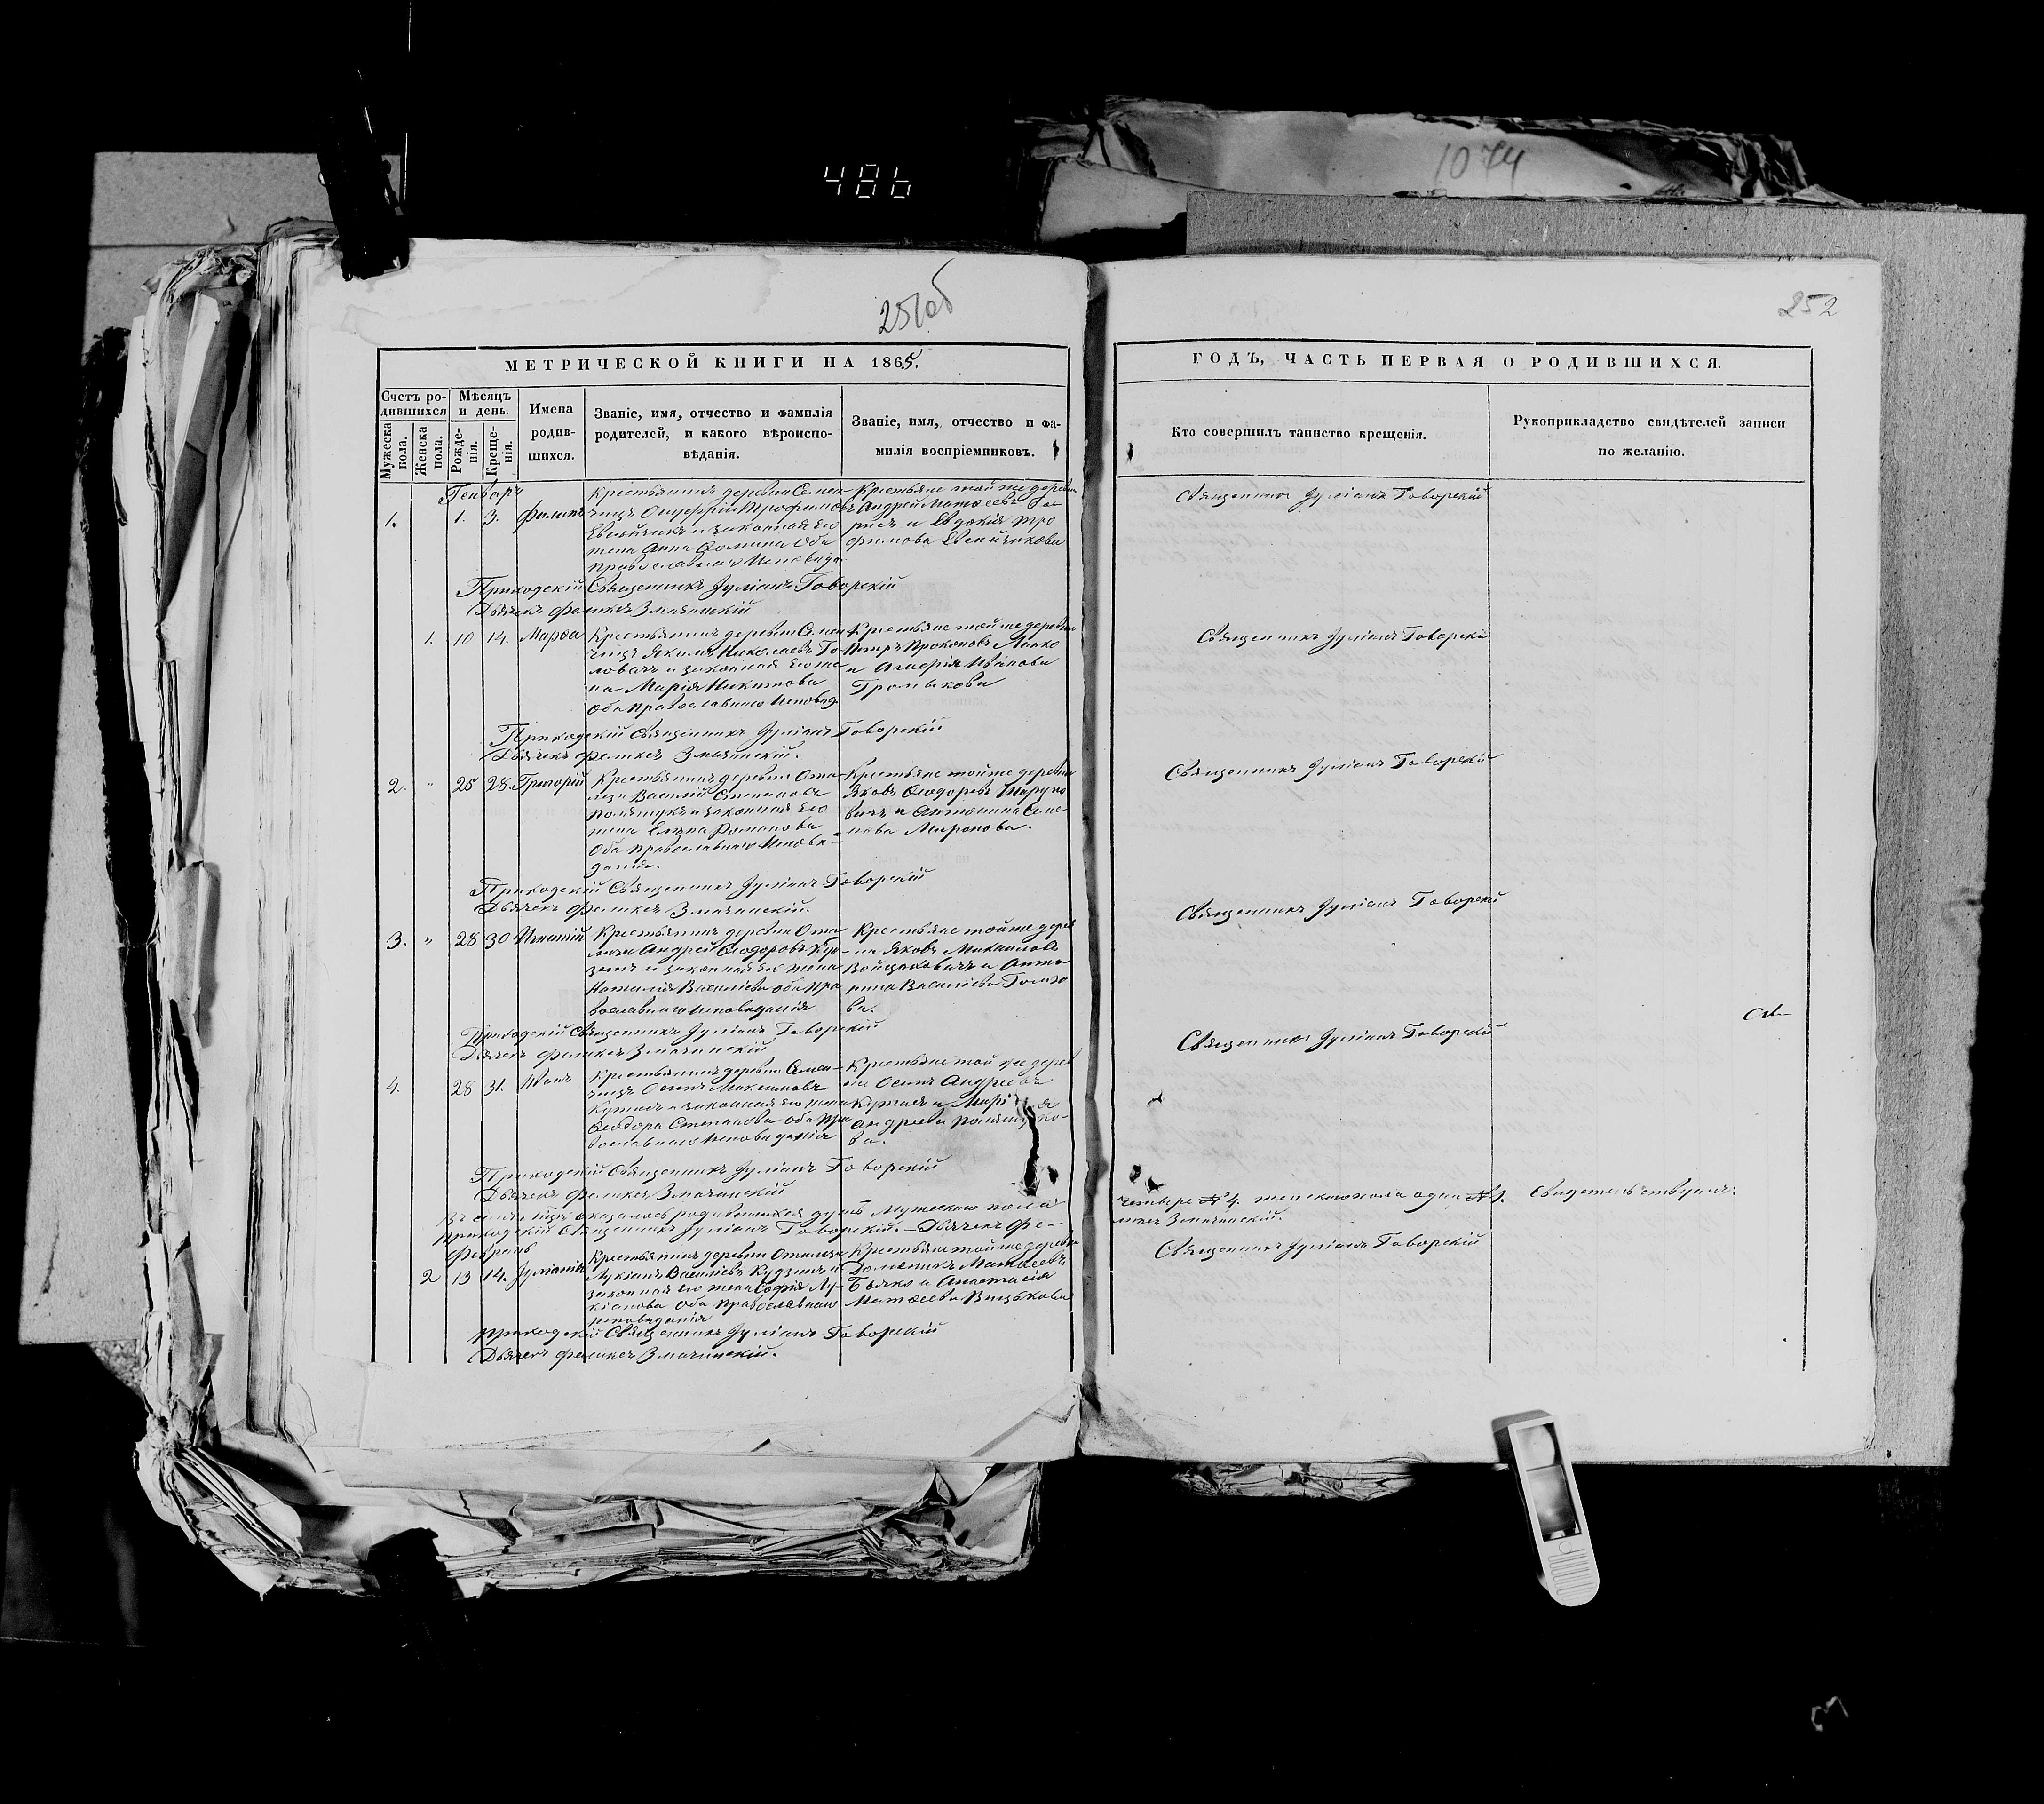 486
1074
251об
252
МЕТРИЧЕСКОЙ КНИГИ НА 1865.
Счетъ родившихся
Мужеска пола.
Женска пола.
Мѣсяцъ и день.
Рожденія.
Крещенія.
Имена родившихся.
Званіе, имя, отчество и фамилія
родителей, и какого вѣроиспо-
вѣданія.
Званіе, имя, отчество и фа-
милія воспріемниковъ.
ГОДЪ, ЧАСТЬ ПЕРВАЯ О РОДИВШИХСЯ.
Кто совершилъ таинство крещенія.
Рукоприкладство свидѣтелей записи
по желанію.
Генварь
1. 1. 3.
Крестьянинъ деревни
чицъ Онуфрій Трофимовъ
и законная его
жена Анна обa
православнаго исповѣда.
Крестьяне той же деревни
Андрей Матѳеевъ
и Евдокія Тро
фимова
Священникъ Іуліанъ Говорскій
Приходскій Священникъ Іуліанъ Говорскій
Дьячекъ Феликсъ Змачинскій
1. 10 14. Марѳа
Крестьянинъ деревни
чицъ Якимъ Николаевъ Го
ловачъ и законная его же
на Марія Никитова
оба православнаго исповѣд.
Крестьяне той же деревни
Петръ Прокоповъ
и Агафія Иванова
Громыкова
Священникъ Іуліанъ Говорскій
Приходскій Священникъ Іуліанъ Говорскій
Дьячекъ Феликсъ Змачинскій.
2. " 25 28. Григорій
Крестьянинъ деревни
Василій Степановъ
и законная его
жена Елена Романова
оба православнаго исповѣ-
данія.
Крестьяне той же деревни
Яковъ Ѳеодоровъ
и Антонина Семе-
нова Миронова.
Священникъ Іуліанъ Говорскій
Приходскій Священникъ Іуліанъ Говорскій
Дьячекъ Феликсъ Змачинскій.
3. " 28 30 Игнатій
Крестьянинъ деревни
Андрей Ѳеодоровъ
и законная его жена
Наталія Васильева оба пра
вославнаго исповѣданія
Крестьяне той же дерев
ни Яковъ Михайловъ
Войцеховичъ и Анто
нина Васильева
ва.
Священникъ Іуліанъ Говорскій
Приходскій Священникъ Іуліанъ Говорскій
Дьячекъ Феликсъ Змачинскій
4. 28 31. Иванъ
Крестьянинъ деревни
чицъ Осипъ Максимовъ
и законная его жена
Ѳеодора Степанова оба пра
вославнаго исповѣданія
Крестьяне той же дерев
ни Осипъ Андреевъ
и Марія
Андреева
ва.
Священникъ Іуліанъ Говорскій
Приходскій Священникъ Іуліанъ Говорскій
Дьячекъ Феликсъ Змачинскій
оказалось родившихся душъ мужескаго пола
четыре № 4. женскаго пола одна № 1. Свидетельствуемъ:
Приходскій Священникъ Іуліанъ Говорскій. – Дьячекъ Фе-
ликсъ Змачинскій.
Февраль
2 13 14. Іуліанія
Крестьянинъ деревни
Лукіанъ Васильевъ
законная его жена Софія Лу-
кіанова оба православнаго
исповѣданія
Крестьяне той же деревни
Доминикъ Матѳеевъ
и Анастасія
Матѳеева
Священникъ Іуліанъ Говорскій
Приходскій Священникъ Іуліанъ Говорскій
Дьячекъ Феликсъ Змачинскій.